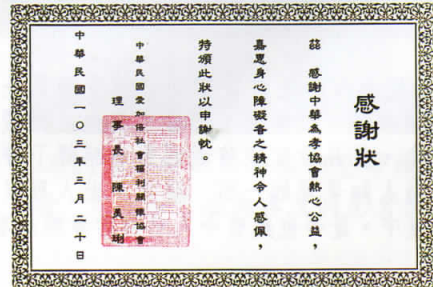 感謝狀
茲　感謝中華為孝協會熱心公益，
嘉惠身心障礙者之精神令人感佩，
特頒此狀以申謝忱。
中華民國愛加倍社會福利關懷協會
理事長　陳美
中華民國一〇三年三月二十日